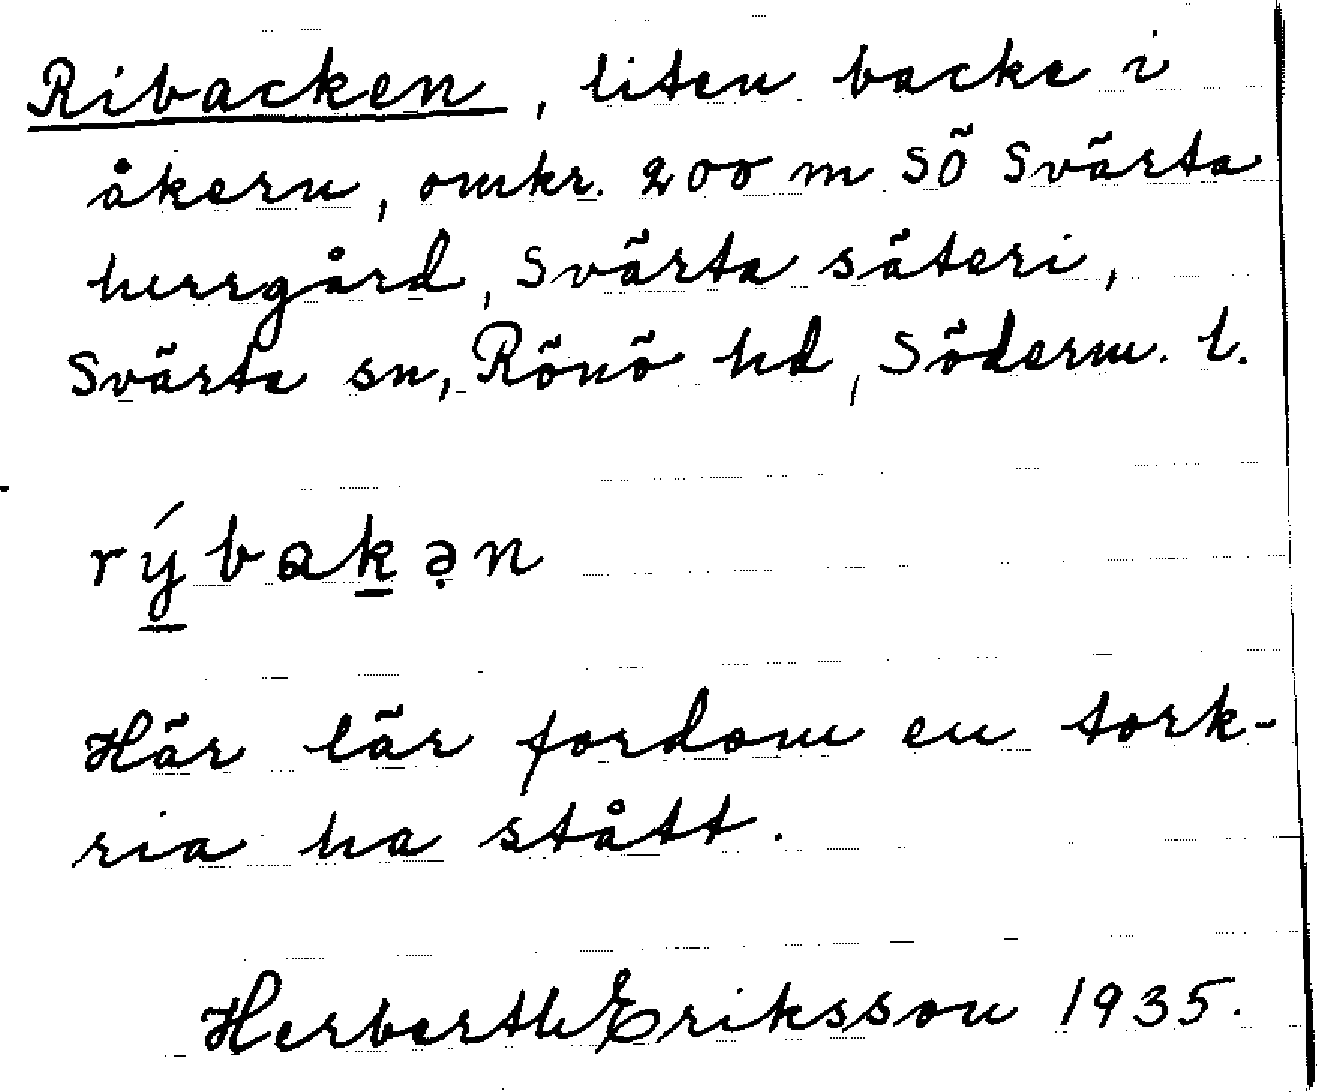 Ribacken, liten backe i
åkern, omkr. 200 m SÖ Svärta
herrgård, Svärta säteri,
Svärta sn, Rönö hd, Söderm. l.
rý̲bak̲ə̣n
Här lär fordom en tork-
ria ha stått.
Herberth Eriksson 1935.